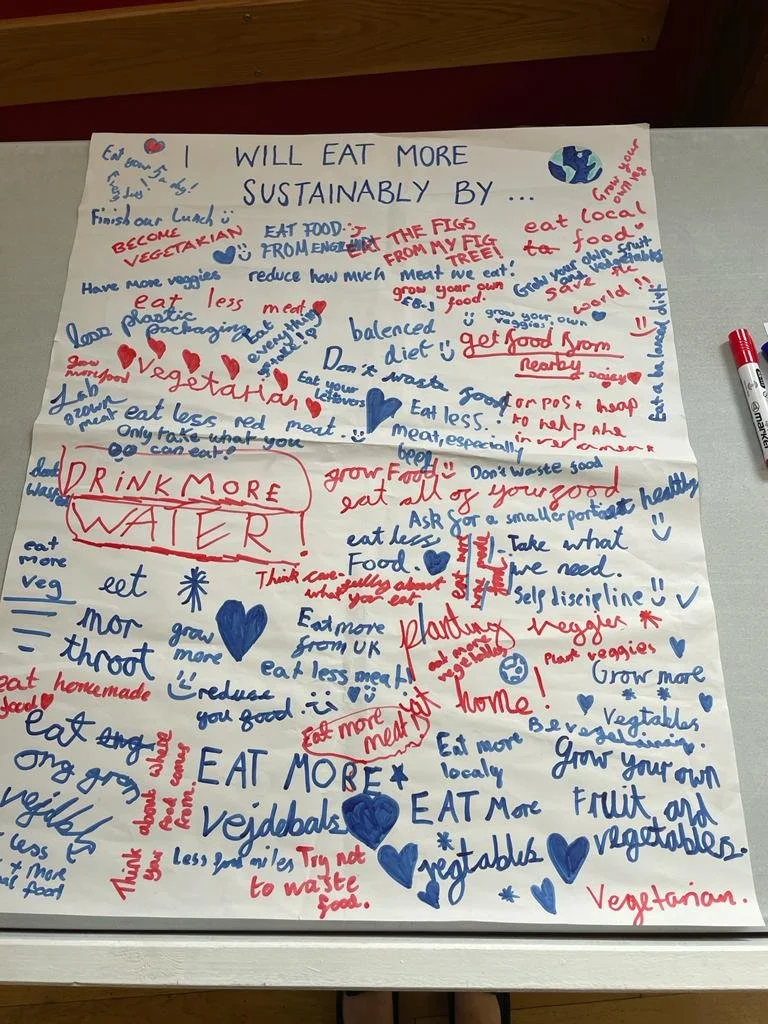 I WILL EAT MORE
SUSTAINABLY BY ...
Eat your 5 a day!
Grow your
own veg
Finish our lunch
BECOME
VEGETARIAN
EAT FOOD
FROM
THE FIGS
FROM MY FIG
TREE!
eat local
food
Have more veggies
reduce how much meat we eat!
Grow your own fruit
and vegetables
save the
world !!
eat less meat
grow your own
food.
grow your own
veggies
less plastic
packaging
Eat
everything
balenced
diet
get food from
nearby
Eat a balanced diet
grow
more food
Vegetarian
Don't waste food
Eat your
leftovers
Lab
grown
meat
eat less red meat.
Eat less
meat, especially
beef
compost heap
to help the
Only take what you
can eat!
DRINK MORE
WATER!
grow Food
Don't waste food
eat all of your food
eat healthy
Ask for a smaller portion
eat less
Food.
Take what
we need.
Self discipline
Think carefully about
what you eat
eat
more
veg
eet
mor
throot
grow
more
Eat more
from UK
planting veggies
eat more
vegetables
Plant veggies
at home!
eat less meat!
Grow more
vegtables
eat homemade
food
reduce
you food
Eat more
meat
Be vegetarian.
eat
Think about where
your food comes
from.
EAT MORE
vejdebals
Eat more
localy
Grow your own
Fruit and
vegetables.
EAT More
vegtables
Less food miles
Try not
to waste
food.
Vegetarian.
marker